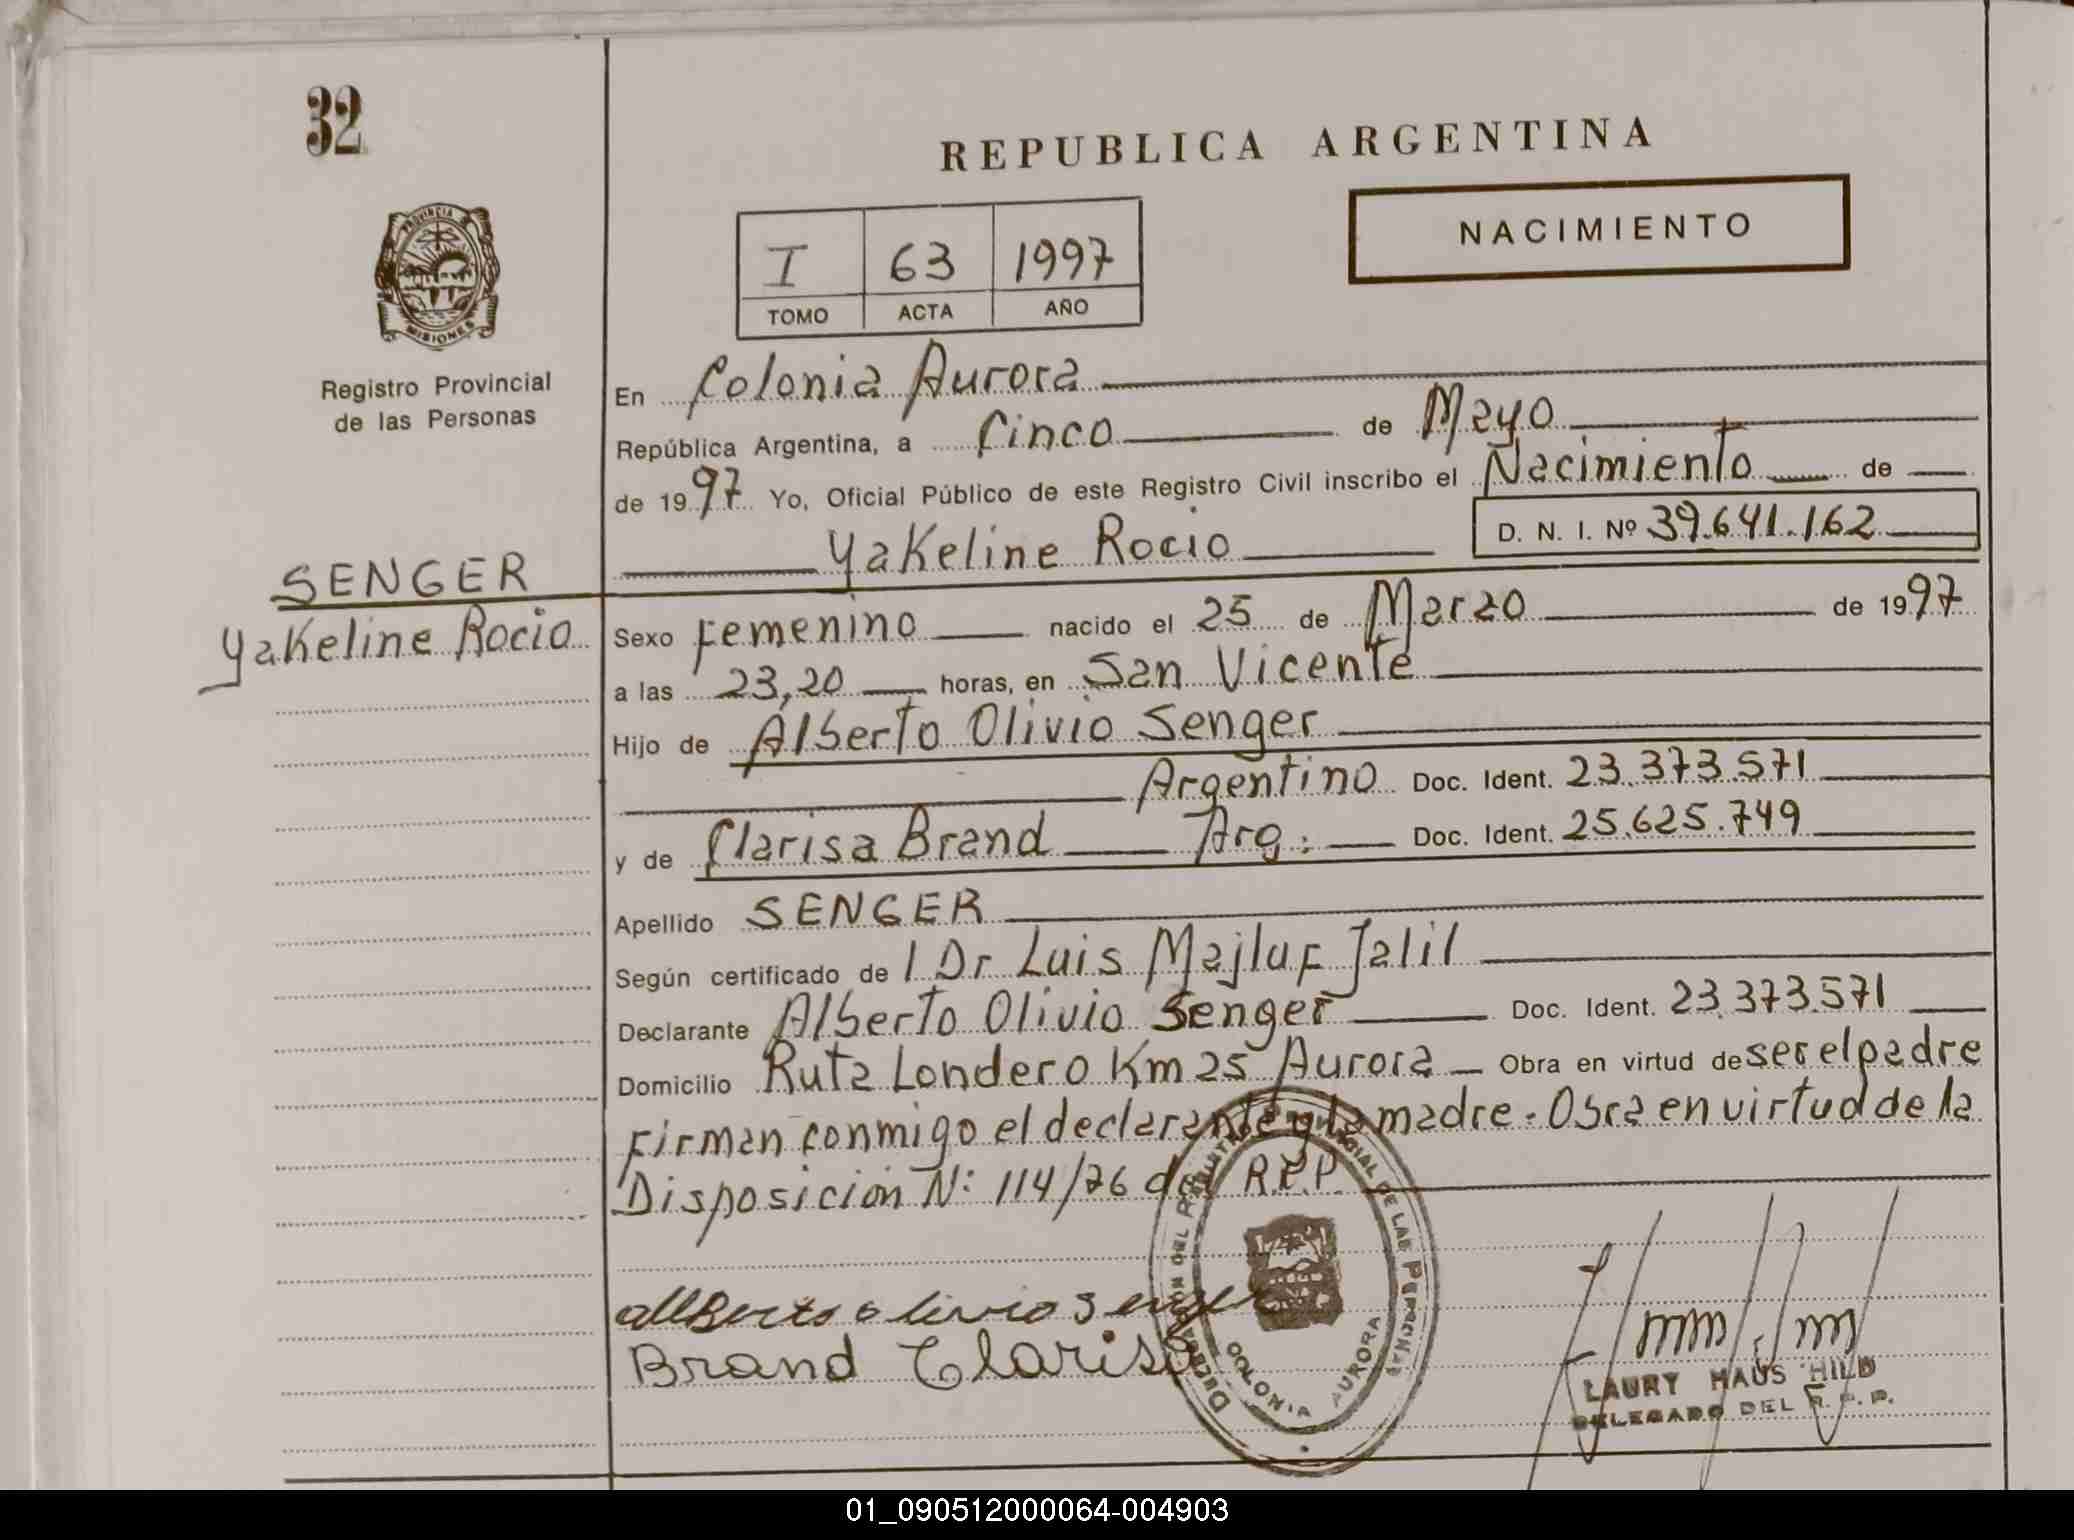 32
REPUBLICA ARGENTINA
NACIMIENTO
I 63 1997
TOMO ACTA AÑO
PROVINCIA
MISIONES
Registro Provincial
de las Personas
SENGER
Yakeline Rocio
En Colonia Aurora
República Argentina, a Cinco de Mayo
de 1997 Yo, Oficial Público de este Registro Civil inscribo el Nacimiento de
Yakeline Rocio D. N. I. Nº 39.641.162
Sexo Femenino nacido el 25 de Marzo de 1997
a las 23,20 horas, en San Vicente
Hijo de Alberto Olivio Senger
Argentino Doc. Ident. 23.373.571
y de Clarisa Brand Arg: Doc. Ident. 25.625.749
Apellido SENGER
Según certificado de l Dr Luis Majluf Jalil
Declarante Alberto Olivio Senger Doc. Ident. 23.373.571
Domicilio Ruta Londero Km 25 Aurora Obra en virtud de ser el padre
Firman conmigo el declarante y la madre. Obra en virtud de la
Disposición N: 114/76 del R.P.P.
Brand Clarisa
COLONIA AURORA
LAURY HAUS HILD
DELEGADO DEL R.P.P.
01_090512000064-004903